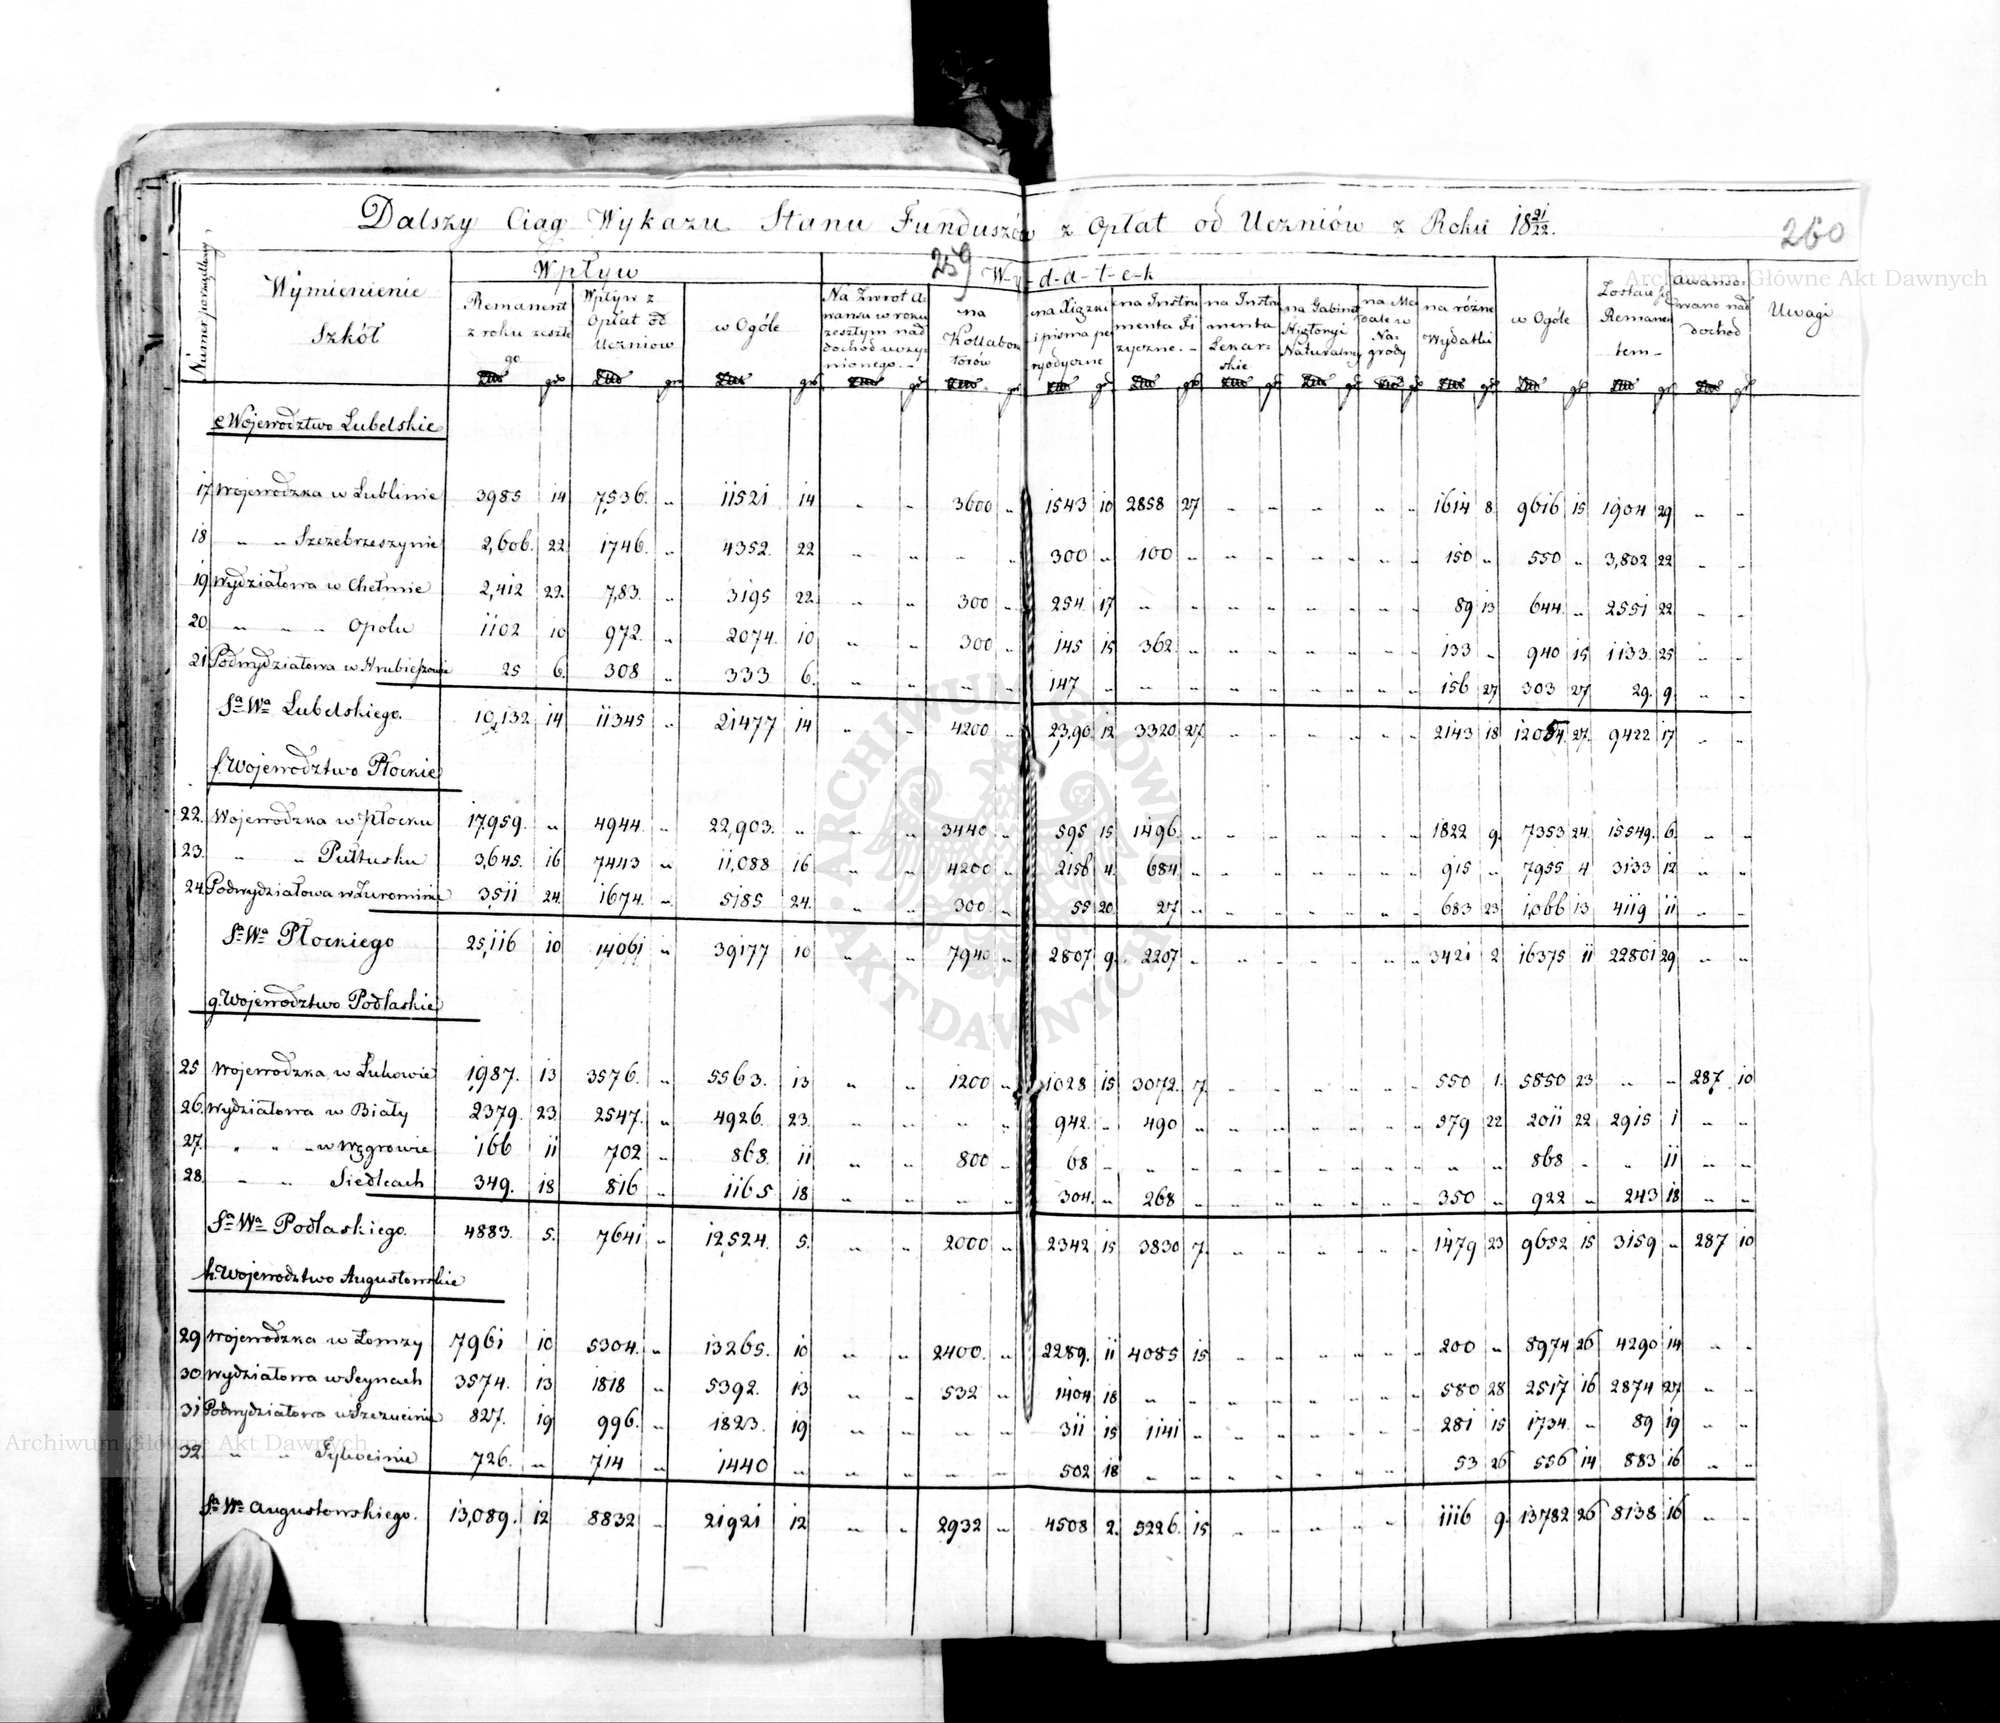 Dalszy Ciąg Wykazu Stanu Funduszów z Opłat od Uczniów z Roku 18 21/22.
260
259
Numer porządkowy
Wymienienie Szkół
Wpływ
Remanent z roku zeszłego
Wpływ z Opłat od Uczniow
w Ogóle
W-y-d-a-t-e-k
Na Zwrot awansu w roku zeszłym nad dochod uczynionego.
na Kollaboratorów
na Xiążki i pisma peryodyczne
na Instrumenta Fizyczne.
na Instrumenta Lekarskie
na Gabinet Hystoryi Naturalney
na Medale w Nagrody
na różne Wydatki
w Ogóle
Zostaie Remanentem
awansowano nad dochod
Uwagi
e Wojewodztwo Lubelskie
17 Wojewodzka w Lublinie 3985 14 7536. " 11521 14 " " 3600 " 1543 10 2858 27 " " " " " " 1614 8 9616 15 1904 29 " "
18 " " Szczebrzeszynie 2,606. 22 1746. " 4352. 22 " " " " 300 " 100 " " " " " " " 150 " 550 " 3,802 22 " "
19 Wydziałowa w Chełmie 2,412 22. 783. " 3195 22 " " 300 " 254. 17 " " " " " " " " 89 13 644. " 2551 22 " "
20 " " " Opolu 1102 10 972. " 2074. 10 " " 300 " 145 15 362. " " " " " " " 133 " 940 15 1133. 25 " "
21 Podwydziałowa w Hrubieszowie 25 6. 308 " 333 6. " " " " 147 " " " " " " " " " 156 27 303 27 29. 9 " "
Sa Wa Lubelskiego. 10,132 14 11345 " 21477 14 " " 4200 " 2390 12 3320 27 " " " " " " 2143 18 12054. 27. 9422 17 " "
f. Wojewodztwo Płockie
22. Wojewodzka w Płocku 17,959. " 4944. " 22,903. " " " 3440 " 595 15 1496. " " " " " " " 1822 9. 7353 24. 15549. 6. " "
23. " " Pułtusku 3,645. 16 7443 " 11,088 16 " " 4200 " 2156 4. 684 " " " " " " " 915 " 7955 4 3133 12 " "
24. Podwydziałowa w Żurominie 3511 24. 1674. " 5185 24. " " 300 " 55 20. 27 " " " " " " " 683 23 1,066 13 4119 11 " "
Sa Wa Płockiego 25,116 10 14061 " 39177 10 " " 7940 " 2807 9. 2207 " " " " " " " 3421 2 16375 11 22801 29 " "
g. Wojewodztwo Podlaskie
25 Wojewodzka w Łukowie 1,987. 13 3576. " 5563. 13 " " 1200 " 1028 15 3072. 7 " " " " " " 550 1. 5850 23 " " 287 10
26. Wydziałowa w Biały 2379. 23. 2547. " 4926. 23. " " " " 942. " 490 " " " " " " " 579 22 2011 22 2915 1 " "
27. " " " w Węgrowie 166 11 702 " 868 11 " " 800 " 68 " " " " " " " " " " " 868 " " 11 " "
28. " " Siedlcach 349. 18 816 " 1165 18 " " " " 304. " 268 " " " " " " " 350 " 922 " 243 18 " "
Sa Wa Podlaskiego. 4883. 5. 7641 " 12,524. 5. " " 2000 " 2342 15 3830 7. " " " " " " 1479 23 9652 15 3159 " 287 10
h. Wojewodztwo Augustowskie
29 Wojewodzka w Łomzy 7961 10 5304. " 13265. 10 " " 2400. " 2289. 11 4085 15 " " " " " " 200 " 8974 26 4290 14 " "
30. Wydziałowa w Seynach 3574. 13 1818 " 5392. 13 " " 532 " 1404 18 " " " " " " " " 580 28 2517 16 2874 27 " "
31 Podwydziałowa w Szczucinie 827. 19 996. " 1823. 19 " " " " 311 15 1141 " " " " " " " 281 15 1734. " 89 19 " "
32. " " Tykocinie 726. " 714 " 1440 " " " " " 502 18 " " " " " " " " 53 26 556 14 883 16 " "
Sa Wa Augustowskiego. 13,089. 12 8832 " 21921 12 " " 2932 " 4508 2. 5226. 15 " " " " " " 1116 9. 13782 26 8138 16 " "
Archiwum Główne Akt Dawnych
Archiwum Główne Akt Dawnych
ARCHIWUM GŁÓWNE AKT DAWNYCH